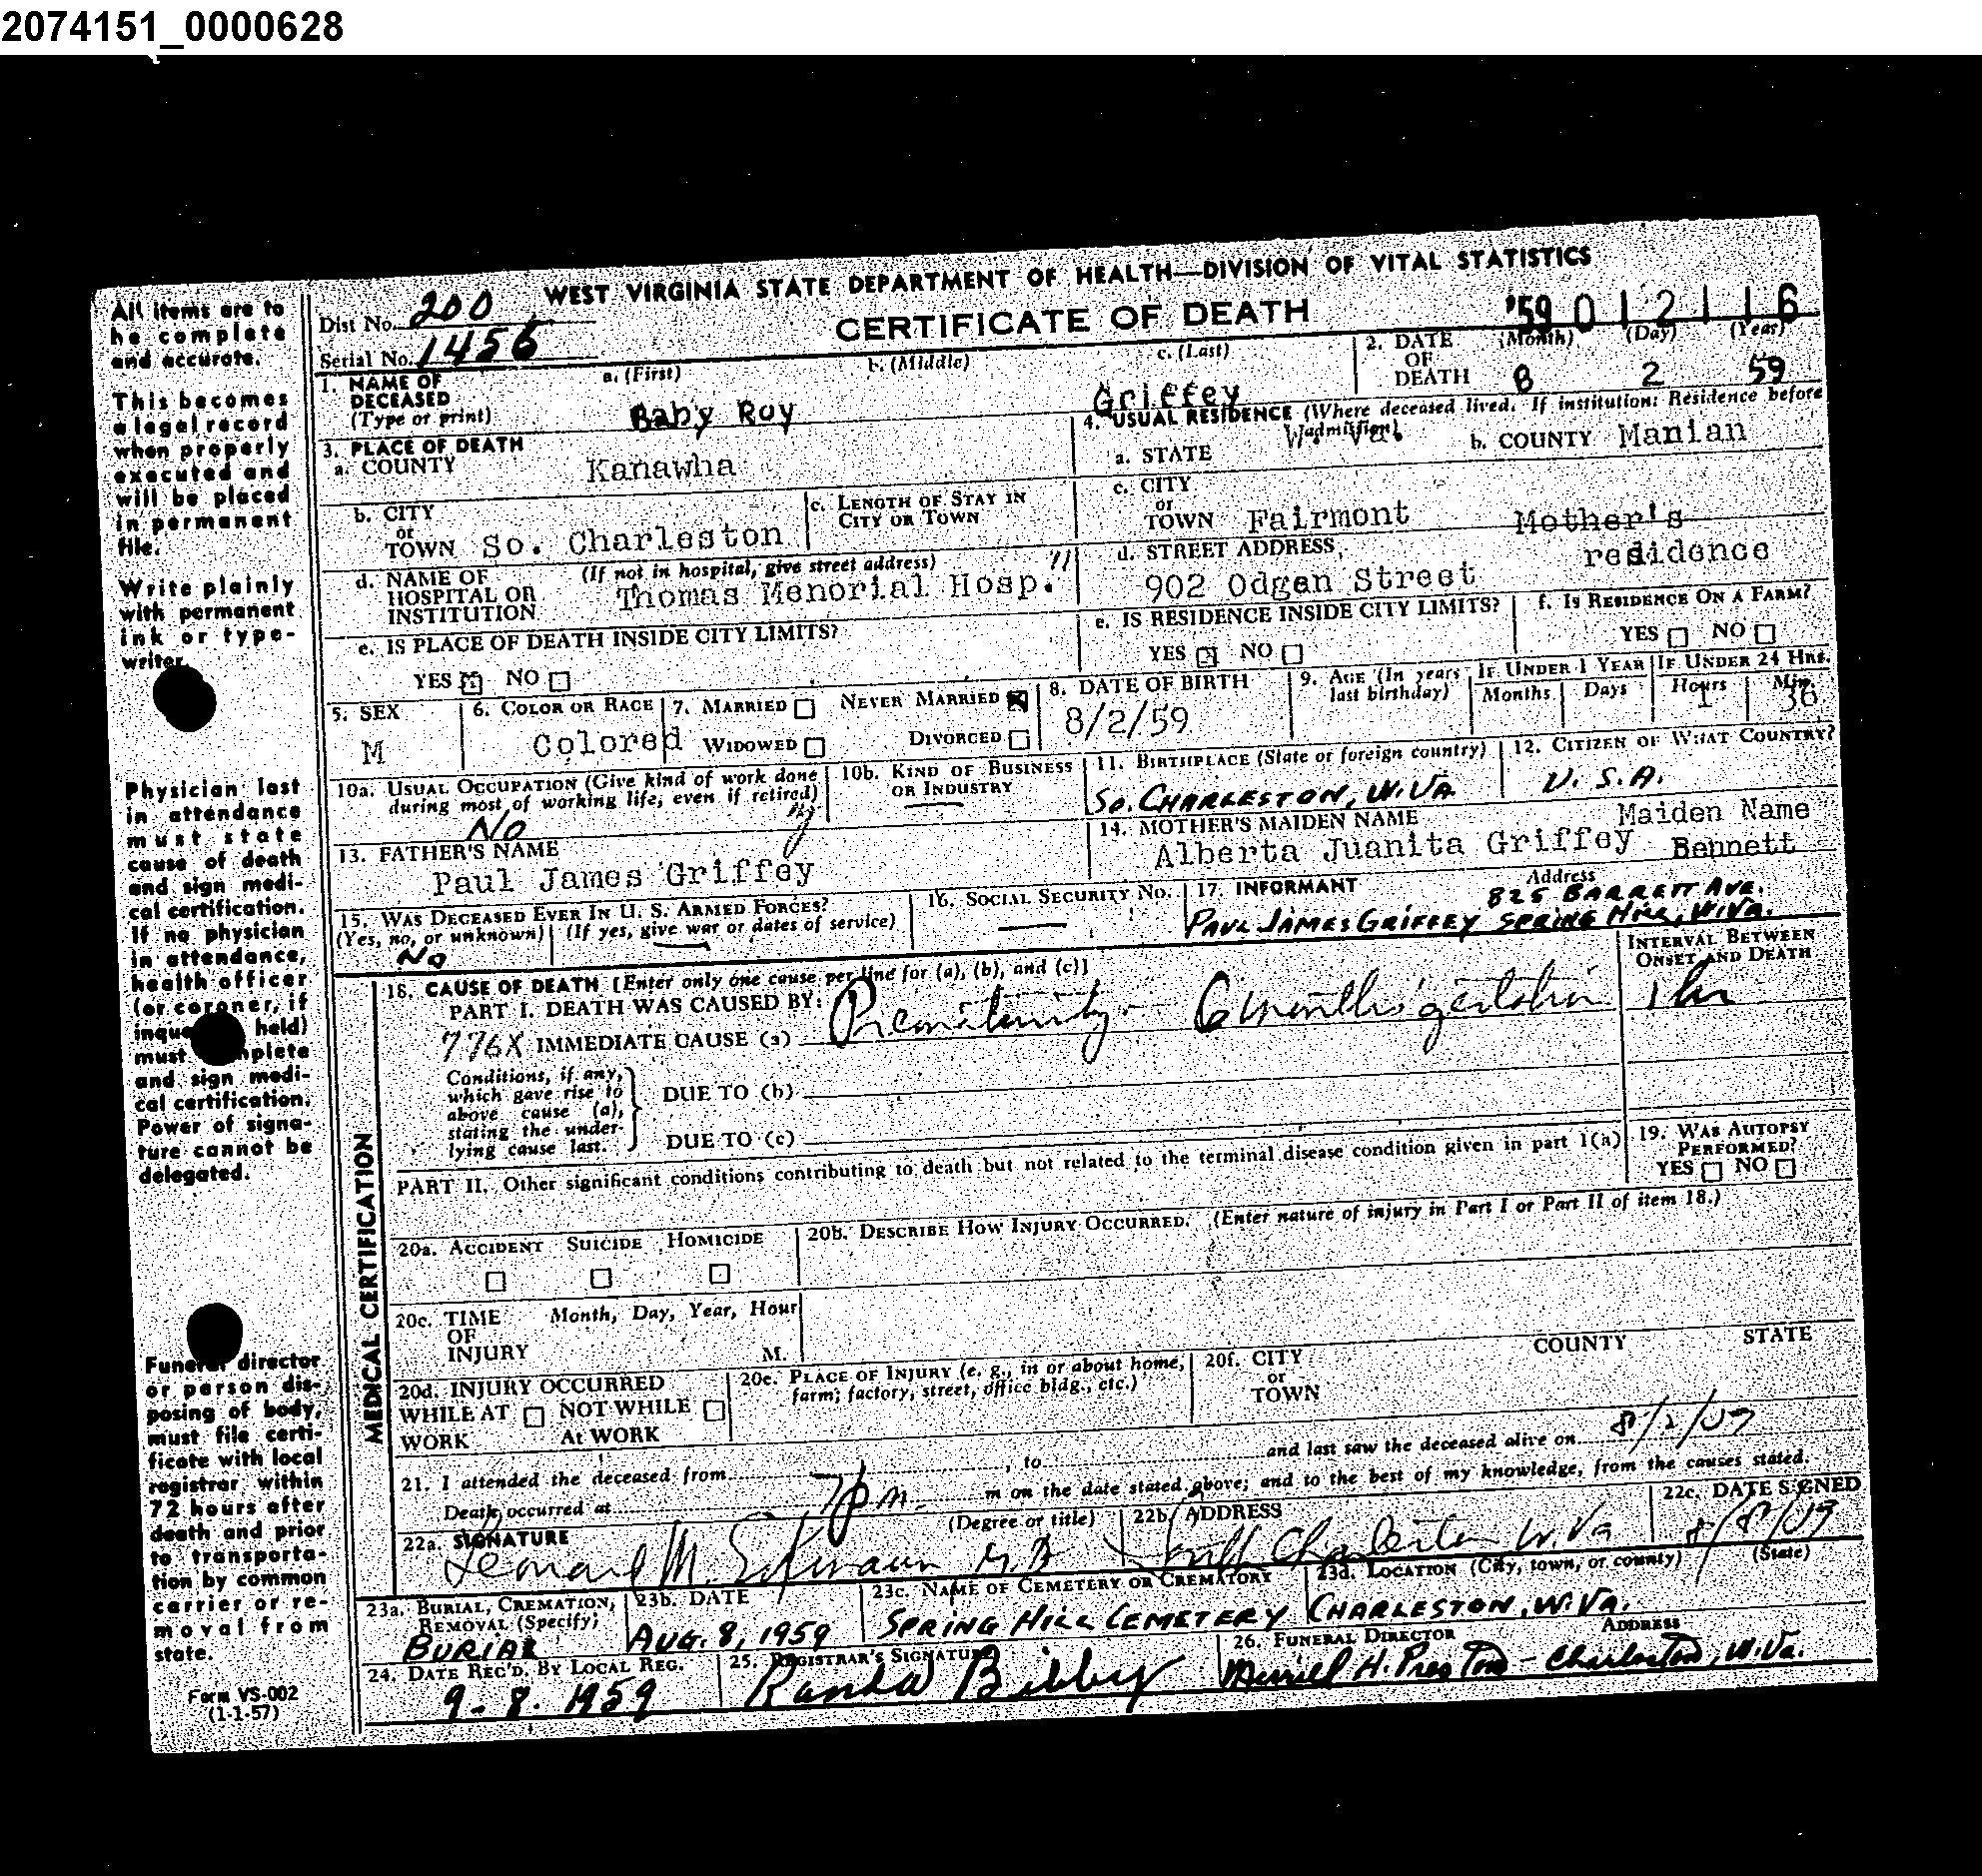 2074151_0000628
WEST VIRGINIA STATE DEPARTMENT OF HEALTH—DIVISION OF VITAL STATISTICS
CERTIFICATE OF DEATH
'59 012116
Dist No. 200
Serial No. 1456
All items are to
be complete
and accurate.
This becomes
a legal record
when properly
executed and
will be placed
in permanent
file.
Write plainly
with permanent
ink or type-
writer.
Physician last
in attendance
must state
cause of death
and sign medi-
cal certification.
If no physician
in attendance,
health officer
(or coroner, if
held)
must
and sign medi-
cal certification.
Power of signa-
ture cannot be
delegated.
Funeral director
or person dis-
posing of body,
must file certi-
ficate with local
registrar within
72 hours after
death and prior
to transporta-
tion by common
carrier or re-
moval from
state.
Form VS-002
(1-1-57)
1. NAME OF DECEASED (Type or print)
a. (First) b. (Middle) c. (Last)
Baby Roy Griffey
2. DATE OF DEATH (Month) (Day) (Year)
8 2 59
3. PLACE OF DEATH
a. COUNTY Kanawha
b. CITY or TOWN So. Charleston
c. LENGTH OF STAY IN CITY OR TOWN
d. NAME OF HOSPITAL OR INSTITUTION (If not in hospital, give street address)
Thomas Menorial Hosp.
e. IS PLACE OF DEATH INSIDE CITY LIMITS?
YES NO
4. USUAL RESIDENCE (Where deceased lived. If institution: Residence before admission)
a. STATE W. Va. b. COUNTY Manian
c. CITY or TOWN Fairmont Mother's
residence
d. STREET ADDRESS
902 Odgen Street
e. IS RESIDENCE INSIDE CITY LIMITS?
YES NO
f. IS RESIDENCE ON A FARM?
YES NO
5. SEX
M
6. COLOR OR RACE
Colored
7. MARRIED NEVER MARRIED
WIDOWED DIVORCED
8. DATE OF BIRTH
8/2/59
9. AGE (In years last birthday)
IF UNDER 1 YEAR Months Days
IF UNDER 24 HRS. Hours Min.
1 30
10a. USUAL OCCUPATION (Give kind of work done during most of working life, even if retired)
No
10b. KIND OF BUSINESS OR INDUSTRY
11. BIRTHPLACE (State or foreign country)
SO. CHARLESTON, W.VA
12. CITIZEN OF WHAT COUNTRY?
U.S.A.
13. FATHER'S NAME
Paul James Griffey
14. MOTHER'S MAIDEN NAME Maiden Name
Alberta Juanita Griffey Bennett
15. WAS DECEASED EVER IN U. S. ARMED FORCES?
(Yes, no, or unknown) (If yes, give war or dates of service)
No
16. SOCIAL SECURITY No.
17. INFORMANT Address
825 BARRETT AVE.
PAUL JAMES GRIFFEY SPRING HILL, W.VA.
MEDICAL CERTIFICATION
18. CAUSE OF DEATH [Enter only one cause per line for (a), (b), and (c)]
INTERVAL BETWEEN ONSET AND DEATH
PART I. DEATH WAS CAUSED BY:
776X IMMEDIATE CAUSE (a) Prematurity - 6 months gestation 1 hr
Conditions, if any,
which gave rise to
above cause (a),
stating the under-
lying cause last.
DUE TO (b)
DUE TO (c)
PART II. Other significant conditions contributing to death but not related to the terminal disease condition given in part I(a)
19. WAS AUTOPSY PERFORMED?
YES NO
20a. ACCIDENT SUICIDE HOMICIDE
20b. DESCRIBE HOW INJURY OCCURRED. (Enter nature of injury in Part I or Part II of item 18.)
20c. TIME OF INJURY Month, Day, Year, Hour
M.
20d. INJURY OCCURRED
WHILE AT WORK NOT WHILE At WORK
20e. PLACE OF INJURY (e. g., in or about home, farm, factory, street, office bldg., etc.)
20f. CITY or TOWN COUNTY STATE
21. I attended the deceased from , to and last saw the deceased alive on
Death occurred at 7 p m. m on the date stated above; and to the best of my knowledge, from the causes stated.
22a. SIGNATURE (Degree or title)
Leonard M. M.D.
22b. ADDRESS
South Charleston W.Va
22c. DATE SIGNED
23a. BURIAL, CREMATION, REMOVAL (Specify)
BURIAL
23b. DATE
AUG. 8, 1959
23c. NAME OF CEMETERY OR CREMATORY
SPRING HILL CEMETERY
23d. LOCATION (City, town, or county) (State)
CHARLESTON, W.VA.
24. DATE REC'D. BY LOCAL REG.
9-8-1959
25. REGISTRAR'S SIGNATURE
Bibby
26. FUNERAL DIRECTOR ADDRESS
H. Preston - Charleston, W.Va.